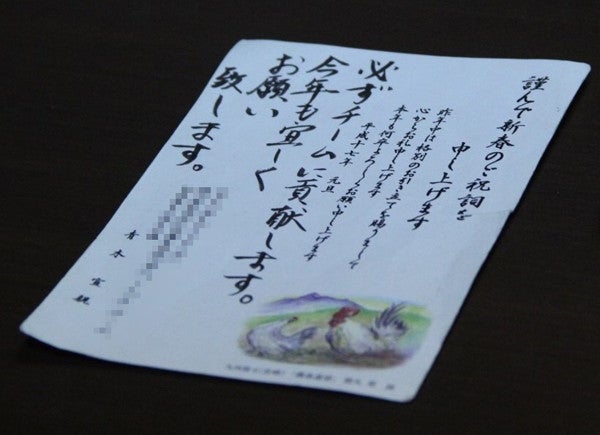 謹んで新春のご祝詞を
申し上げます
昨年中は格別のお引き立てを賜りまして
心からお礼申し上げます
本年も何卒よろしくお願い申し上げます
平成十七年 元旦
必ずチームに貢献します。
今年も宜しく
お願い
致します。
青木 宣親